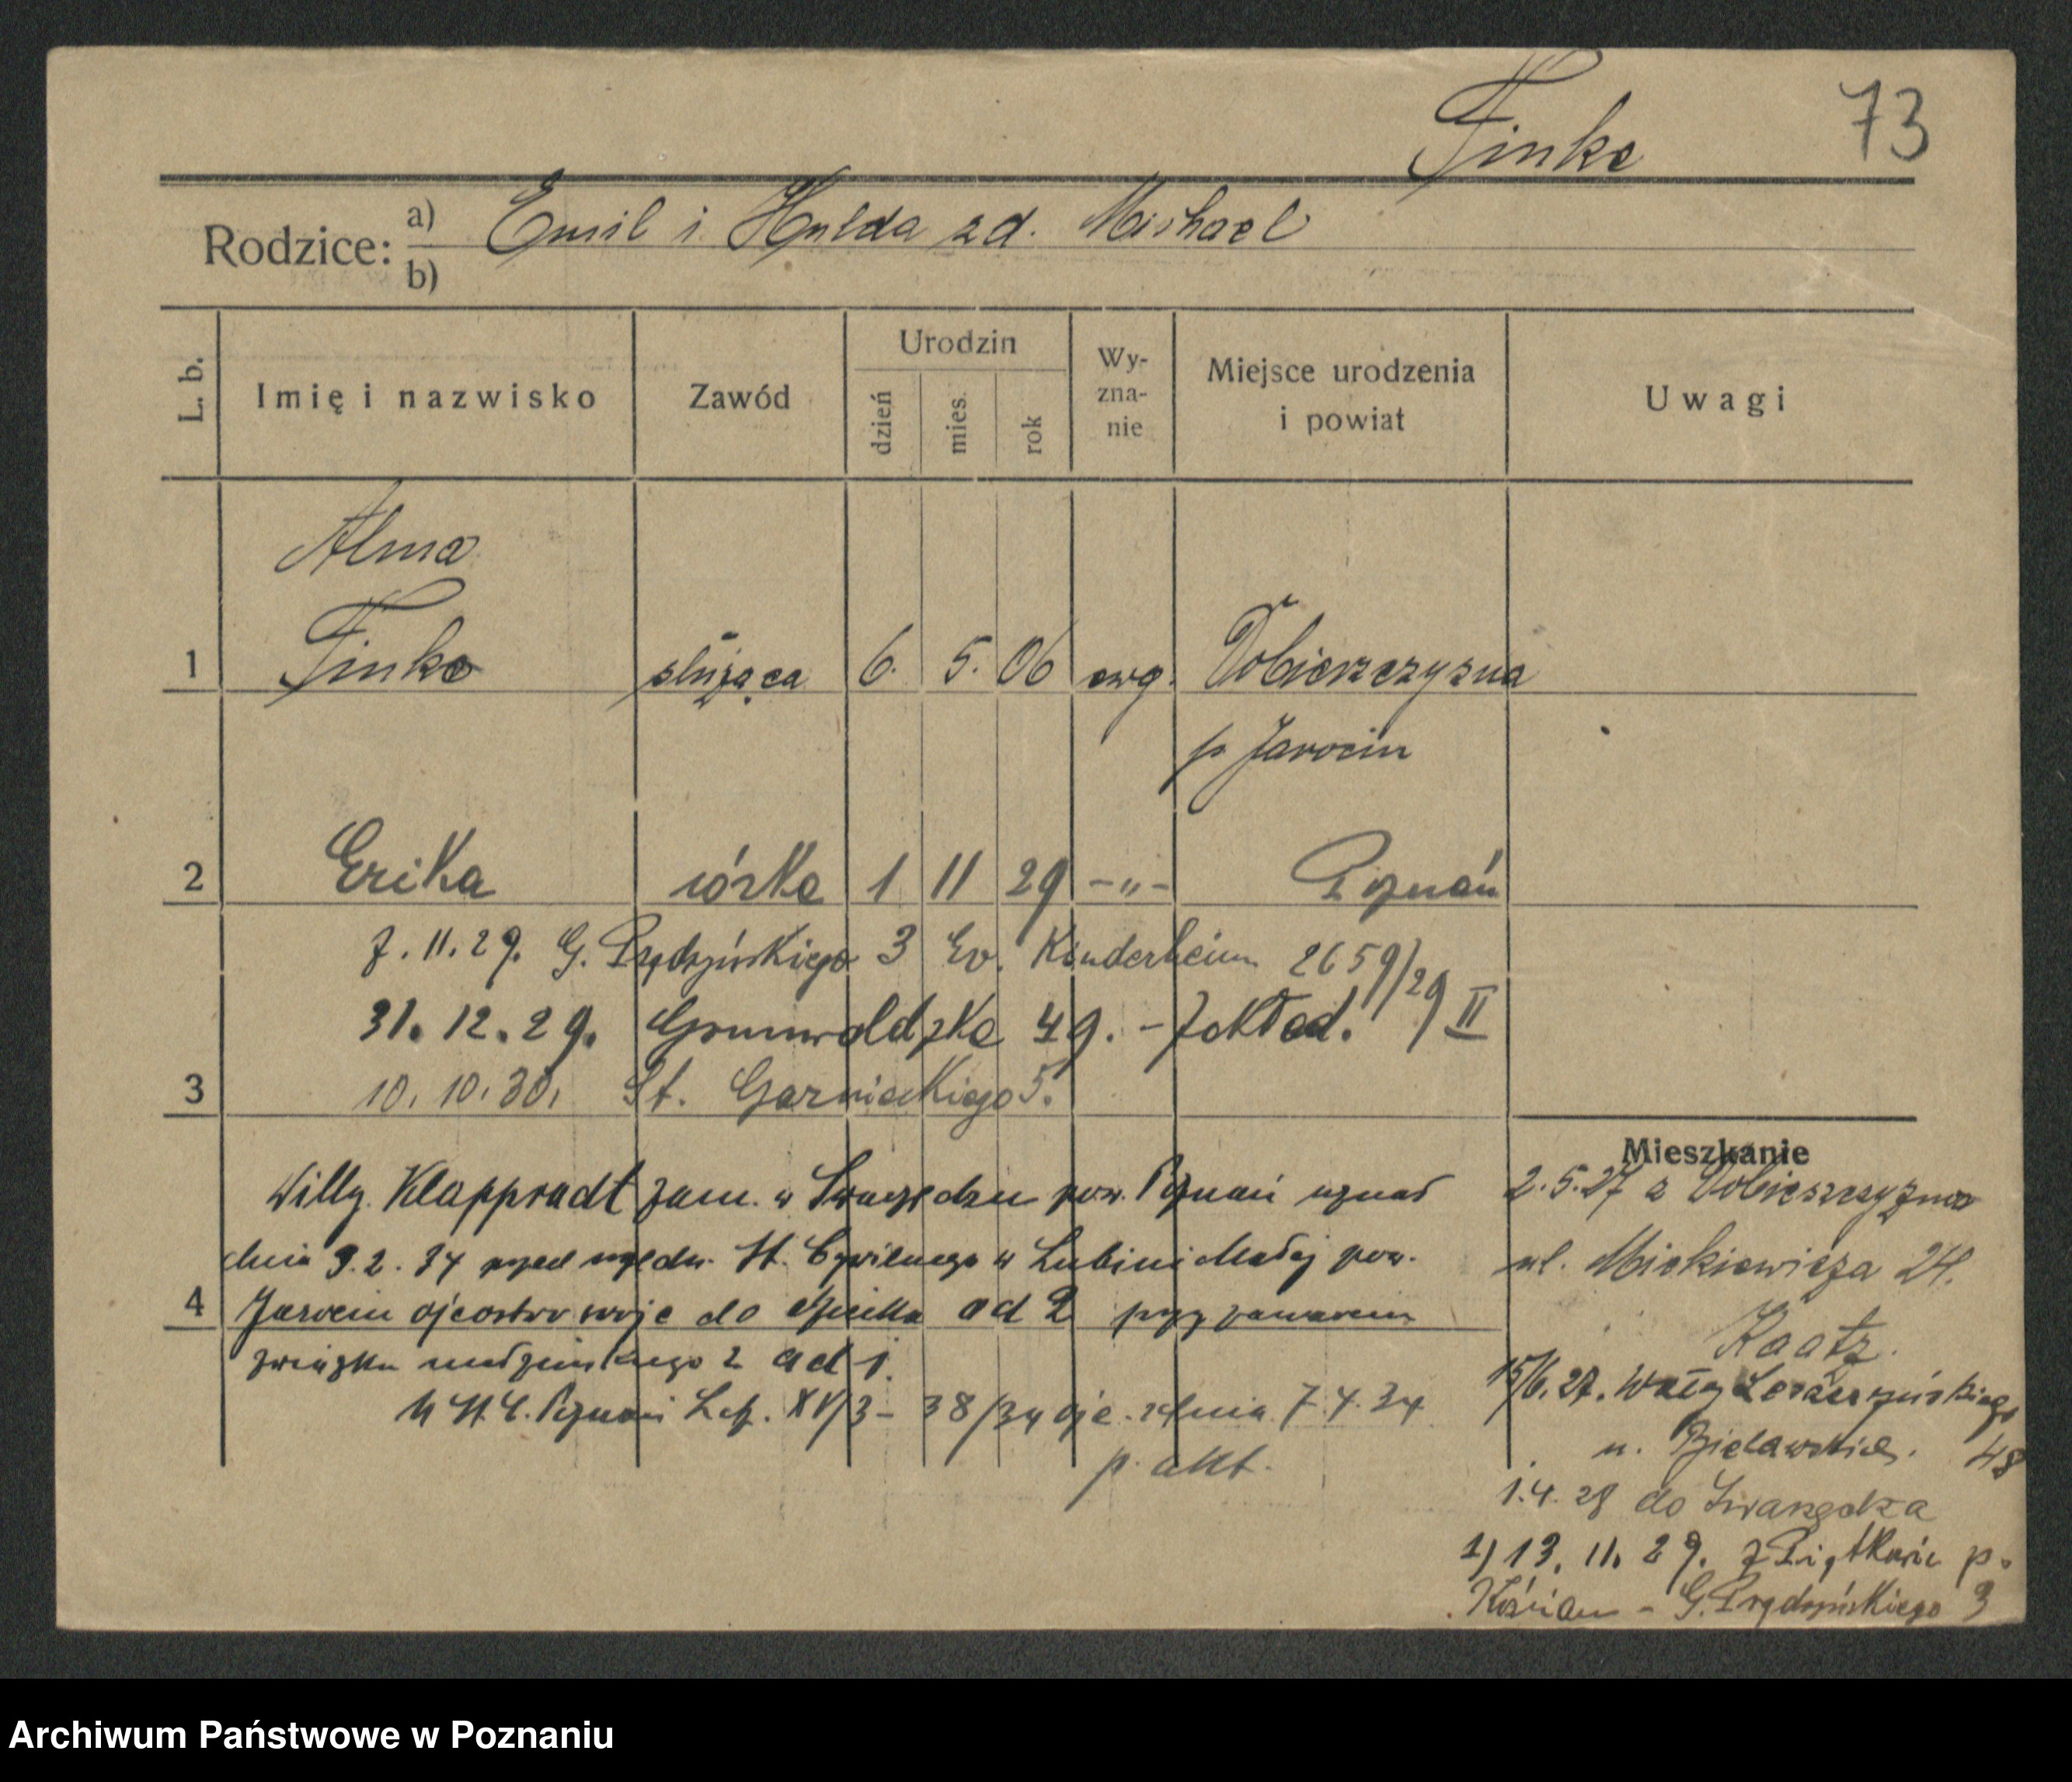 Finke 73
Rodzice: a) Emil i Hulda zd. Michael
b)
L. b. Imię i nazwisko Zawód Urodzin dzień mies. rok Wy-zna-nie Miejsce urodzenia i powiat Uwagi
Alma
1 Finke służąca 6. 5. 06 ewg. Dobieszczyzna
p Jarocin
2 Erika córka 1 11 29 -„- Poznań
7. 11. 29. G. Prądzyńskiego 3 Ev. Kinderheim 2659/29 II
31. 12. 29. Grunwaldzka 49. - Zakład.
3 10. 10. 30. St. Czarnieckiego 5.
Mieszkanie
Willy Klappradt zam. w Swarzędzu pow. Poznań uznał
dnia 9. 2. 34 przed urzędn. St. Cywilnego w Lubini Małej pow.
4 Jarocin ojcostwo swoje do dziecka ad 2 przy zawarciu
związku małżeńskiego z ad 1.
U. St. C. Poznań XV/3 - 38/34 z dnia 7. 4. 34
p. akt.
2. 5. 27 z Dobieszczyzna
ul. Mickiewicza 24.
Kaatz.
15/6. 27. Wały Leszczyńskiego
u. Bielawskich. 48
1. 4. 28 do Swarzędza
1) 13. 11. 29. z p.
Kościan - G. Prądzyńskiego 3
Archiwum Państwowe w Poznaniu